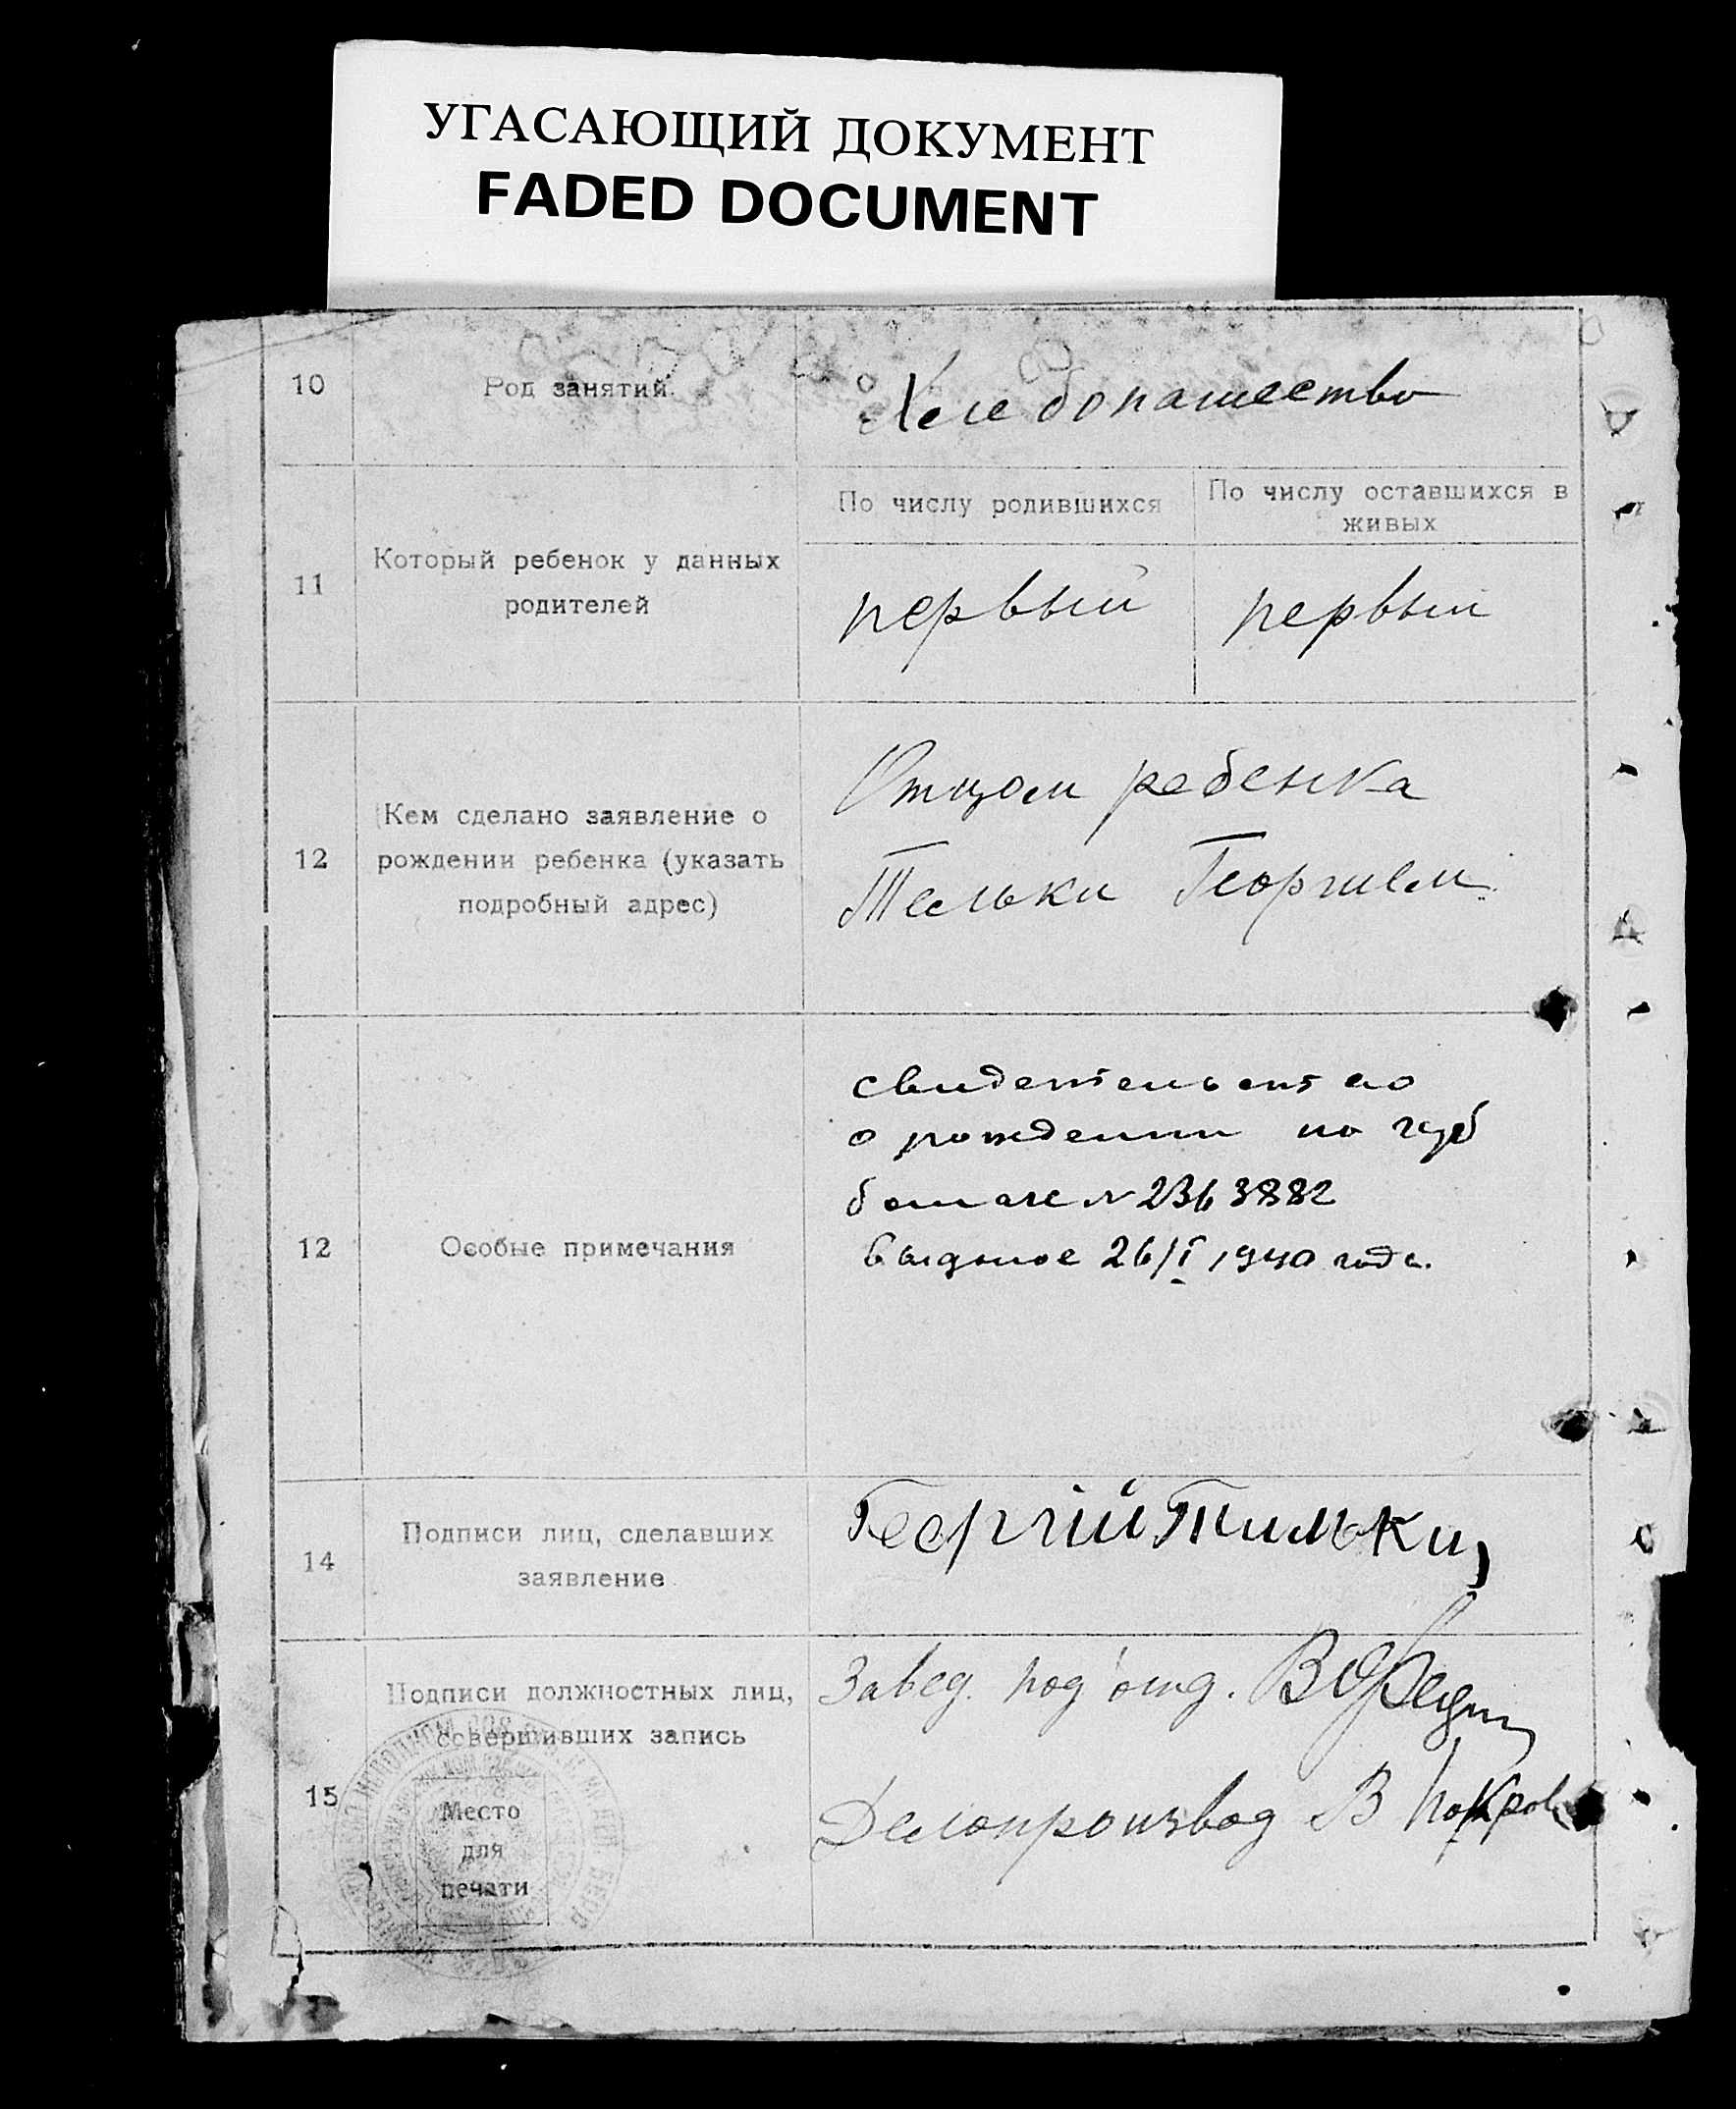 УГАСАЮЩИЙ ДОКУМЕНТ
FADED DOCUMENT
10
Род занятий
Хлебопашество
11
Который ребенок у данных
родителей
По числу родившихся
По числу оставшихся в
живых
первый
первый
12
Кем сделано заявление о
рождении ребенка (указать
подробный адрес)
Отцом ребенка
Тельки Георгием
12
Особые примечания
свидетельство
о рождении на
бланке № 2363882
выданое 26/I 1940 года.
14
Подписи лиц, сделавших
заявление
Георгій Тильки
15
Подписи должностных лиц,
совершивших запись
Место
для
печати
Завед. подотд.
Делопроизвод В Покров